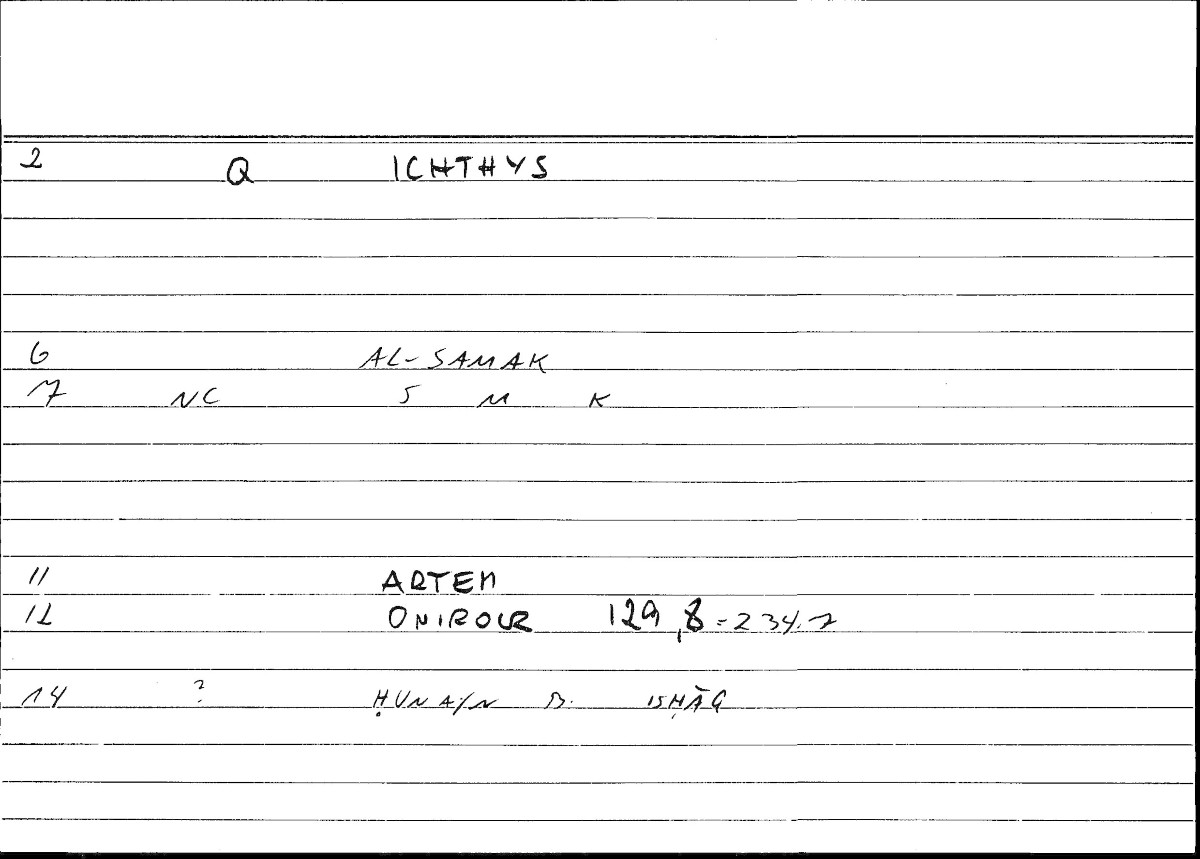 2 Q ICHTHYS
6 AL-SAMAK
7 NC S M K
11 ARTEM
12 ONIROCR 129,8 = 234.7
14 ? ḤUNAYN B. ISḤĀQ